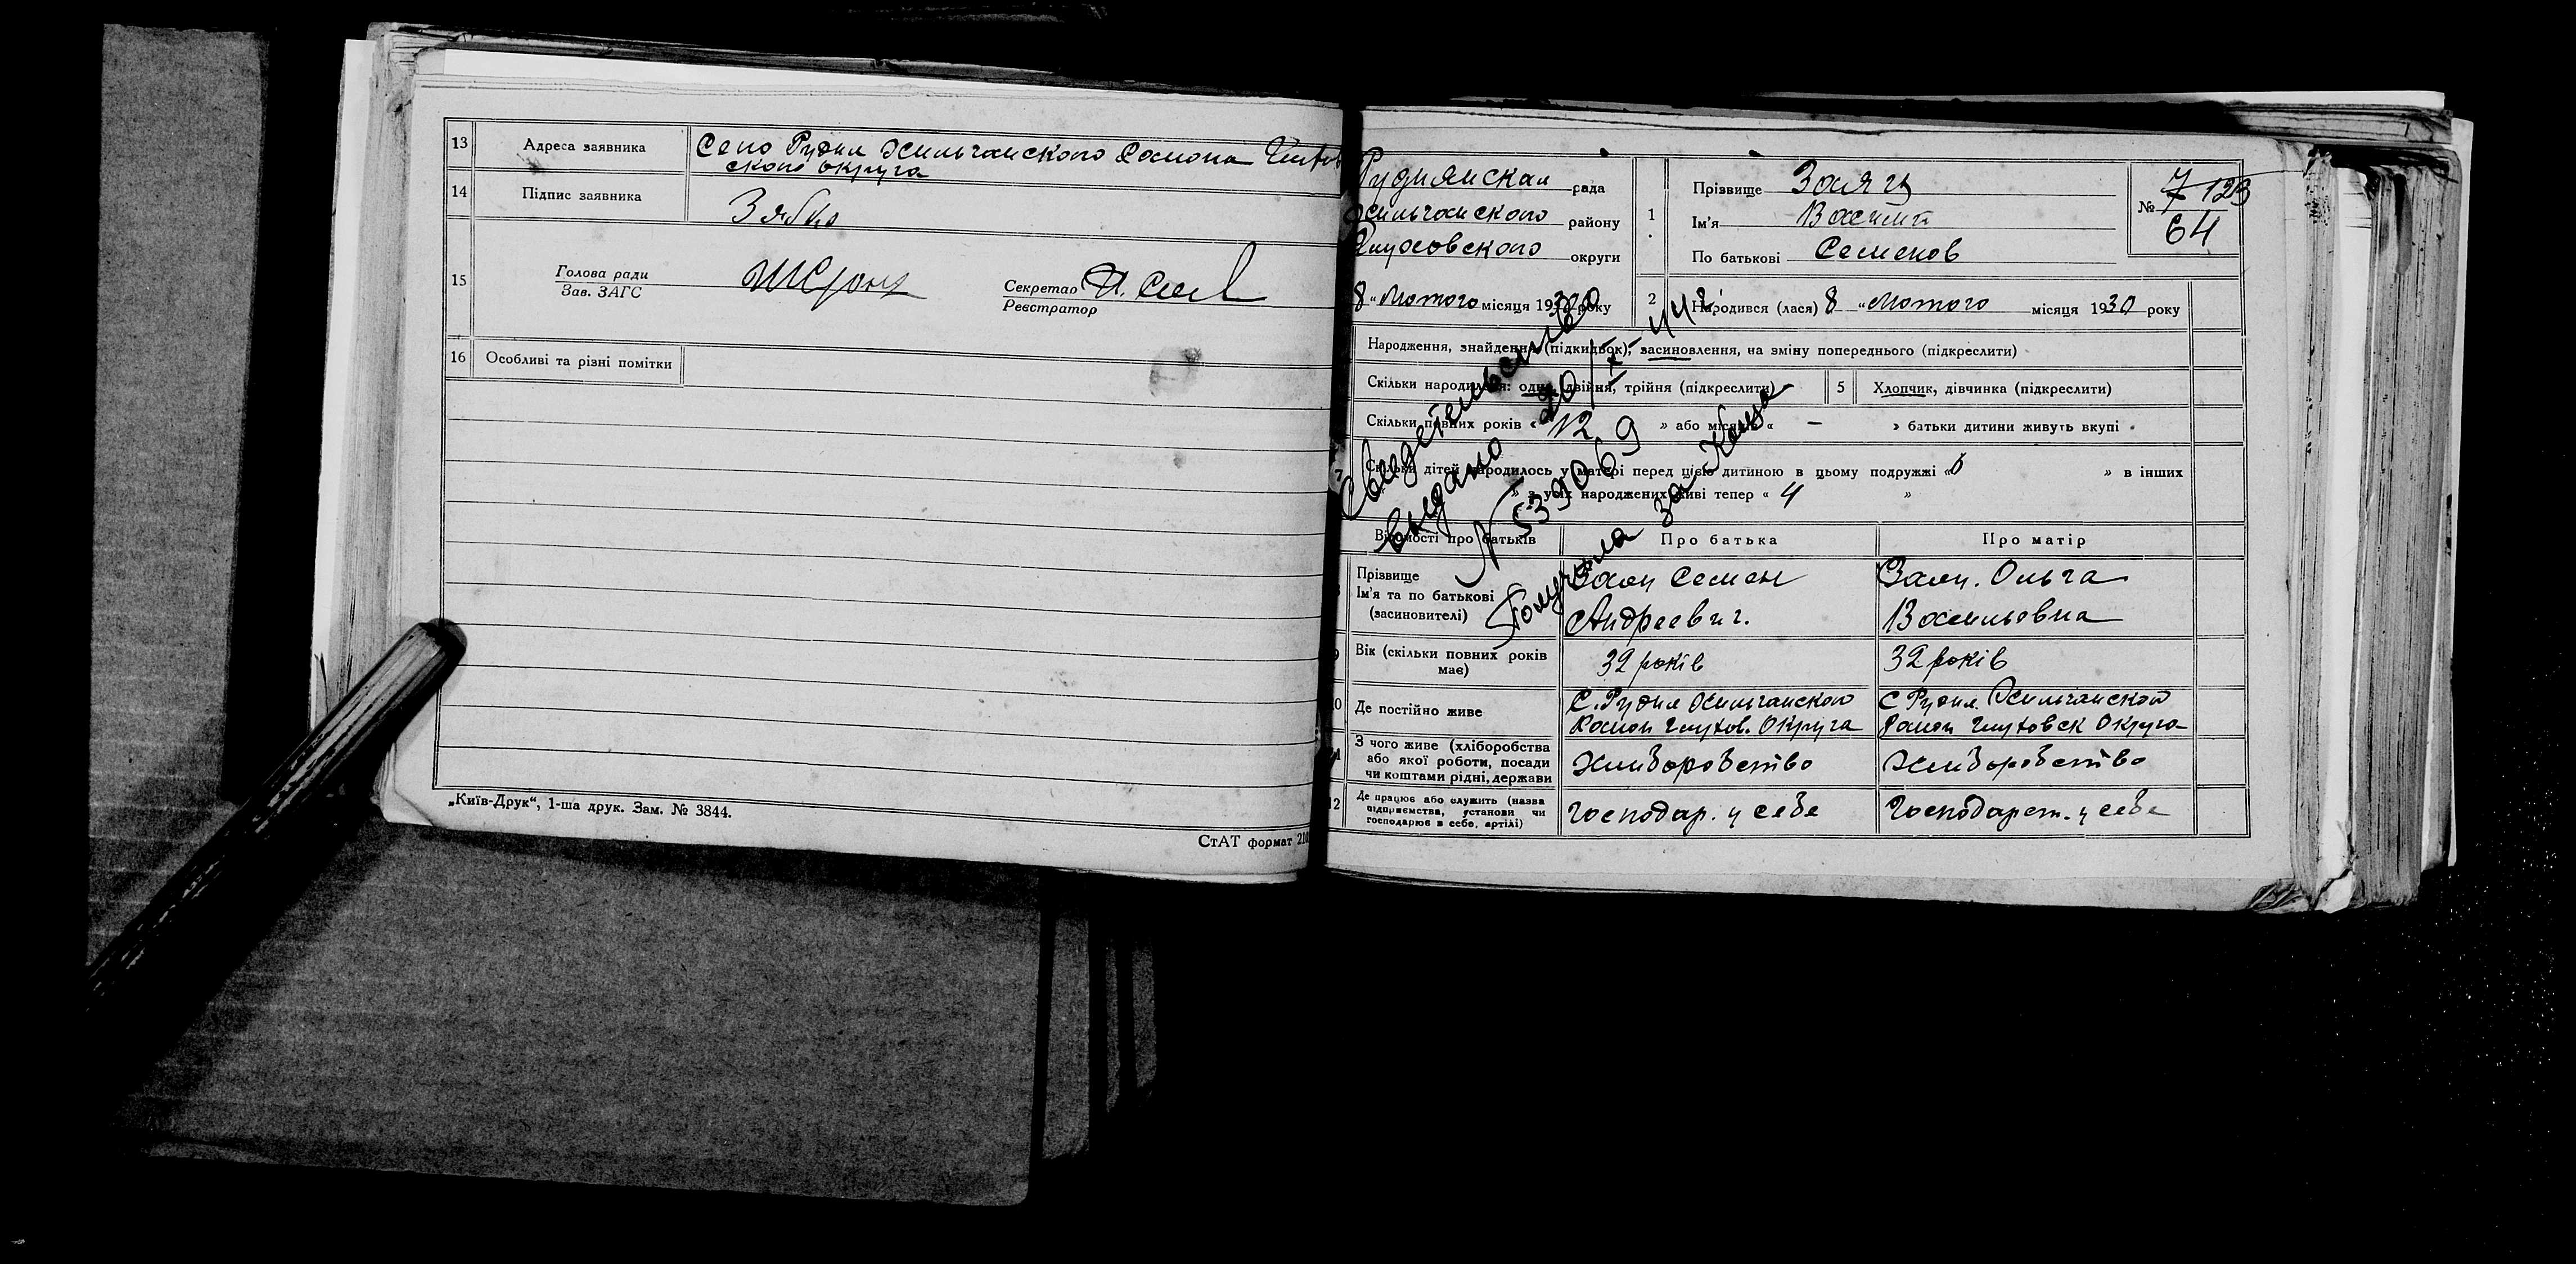 13 Адреса заявника Село Рудня Хильчанского Района Глухов
ского округа
14 Підпис заявника Зябко
15 Голова ради
Зав. ЗАГС
Секретар
Реєстратор
16 Особливі та різні помітки
„Київ-Друк“, 1-ша друк. Зам. № 3844.
СтАТ формат 210
Руднянская рада
Хильчанского району
округи
8 " Лютого місяця 1930 року
1 Прізвище Заяц
Ім'я Василий
По батькові Семенов
№ 7 123
64
2 Народився (лася) 8 " Лютого місяця 1930 року
Народження, знайдення (підкидьок), засиновлення, на зміну попереднього (підкреслити)
Скільки народилося: одна, двійня, трійня (підкреслити) 5 Хлопчик, дівчинка (підкреслити)
Скільки повних років « 12 » або місяців « — » батьки дитини живуть вкупі
7 Скільки дітей народилось у матері перед цією дитиною в цьому подружжі « 5 » в інших
» з усіх народжених живі тепер « 4 »
Свидетельство
выдано 20/X-44 г.
№ 539069
Получила за Хомца
Відомості про батьків Про батька Про матір
Прізвище
Ім'я та по батькові
(засиновителі)
Заяц Семен
Андреевич.
Заяц. Ольга
Васильовна
Вік (скільки повних років
має)
32 років
32 років
Де постійно живе
С. Рудня Хильчанской
Район Глухов. Округа
С Рудня Хильчанской
Район Глуховск Округа
З чого живе (хліборобства
або якої роботи, посади
чи коштами рідні, держави
Хлиборобство
Хлиборобство
Де працює або служить (назва
підприємства, установи чи
господарює в себе, артілі)
Господар. у себе
Господарст. у себе